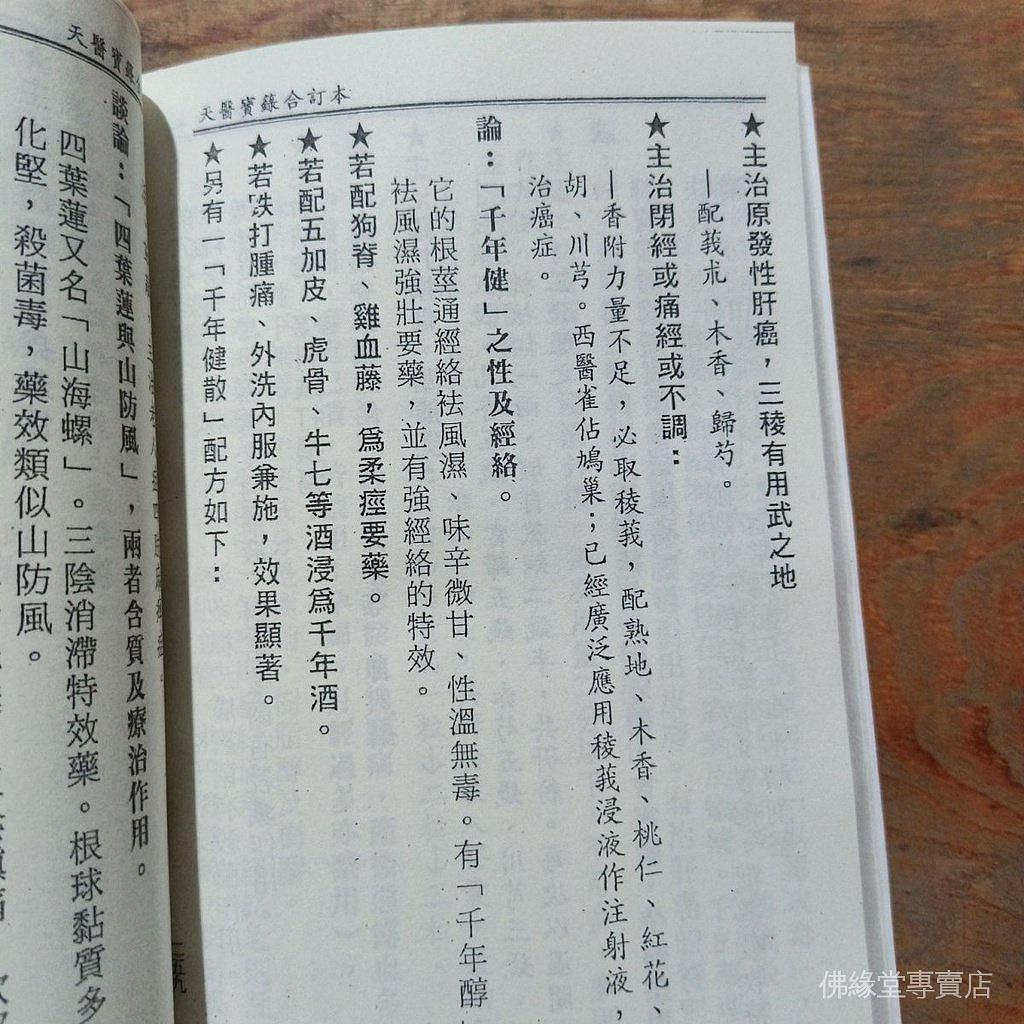 天醫寶錄合訂本
★主治原發性肝癌，三稜有用武之地
—配莪朮、木香、歸芍。
★主治閉經或痛經或不調：
—香附力量不足，必取稜莪，配熟地、木香、桃仁、紅花、
胡、川芎。西醫雀佔鳩巢；已經廣泛應用稜莪浸液作注射液，
治癌症。
論：「千年健」之性及經絡。
它的根莖通經絡袪風濕、味辛微甘、性溫無毒。有「千年醇
袪風濕強壯要藥，並有強經絡的特效。
★若配狗脊、雞血藤，爲柔痙要藥。
★若配五加皮、虎骨、牛七等酒浸爲千年酒。
★若跌打腫痛、外洗內服兼施，效果顯著。
★另有一「千年健散」配方如下：
天醫寶
談論：「四葉蓮與山防風」，兩者含質及療治作用。
四葉蓮又名「山海螺」。三陰消滯特效藥。根球黏質多
化堅，殺菌毒，藥效類似山防風。
佛緣堂專賣店